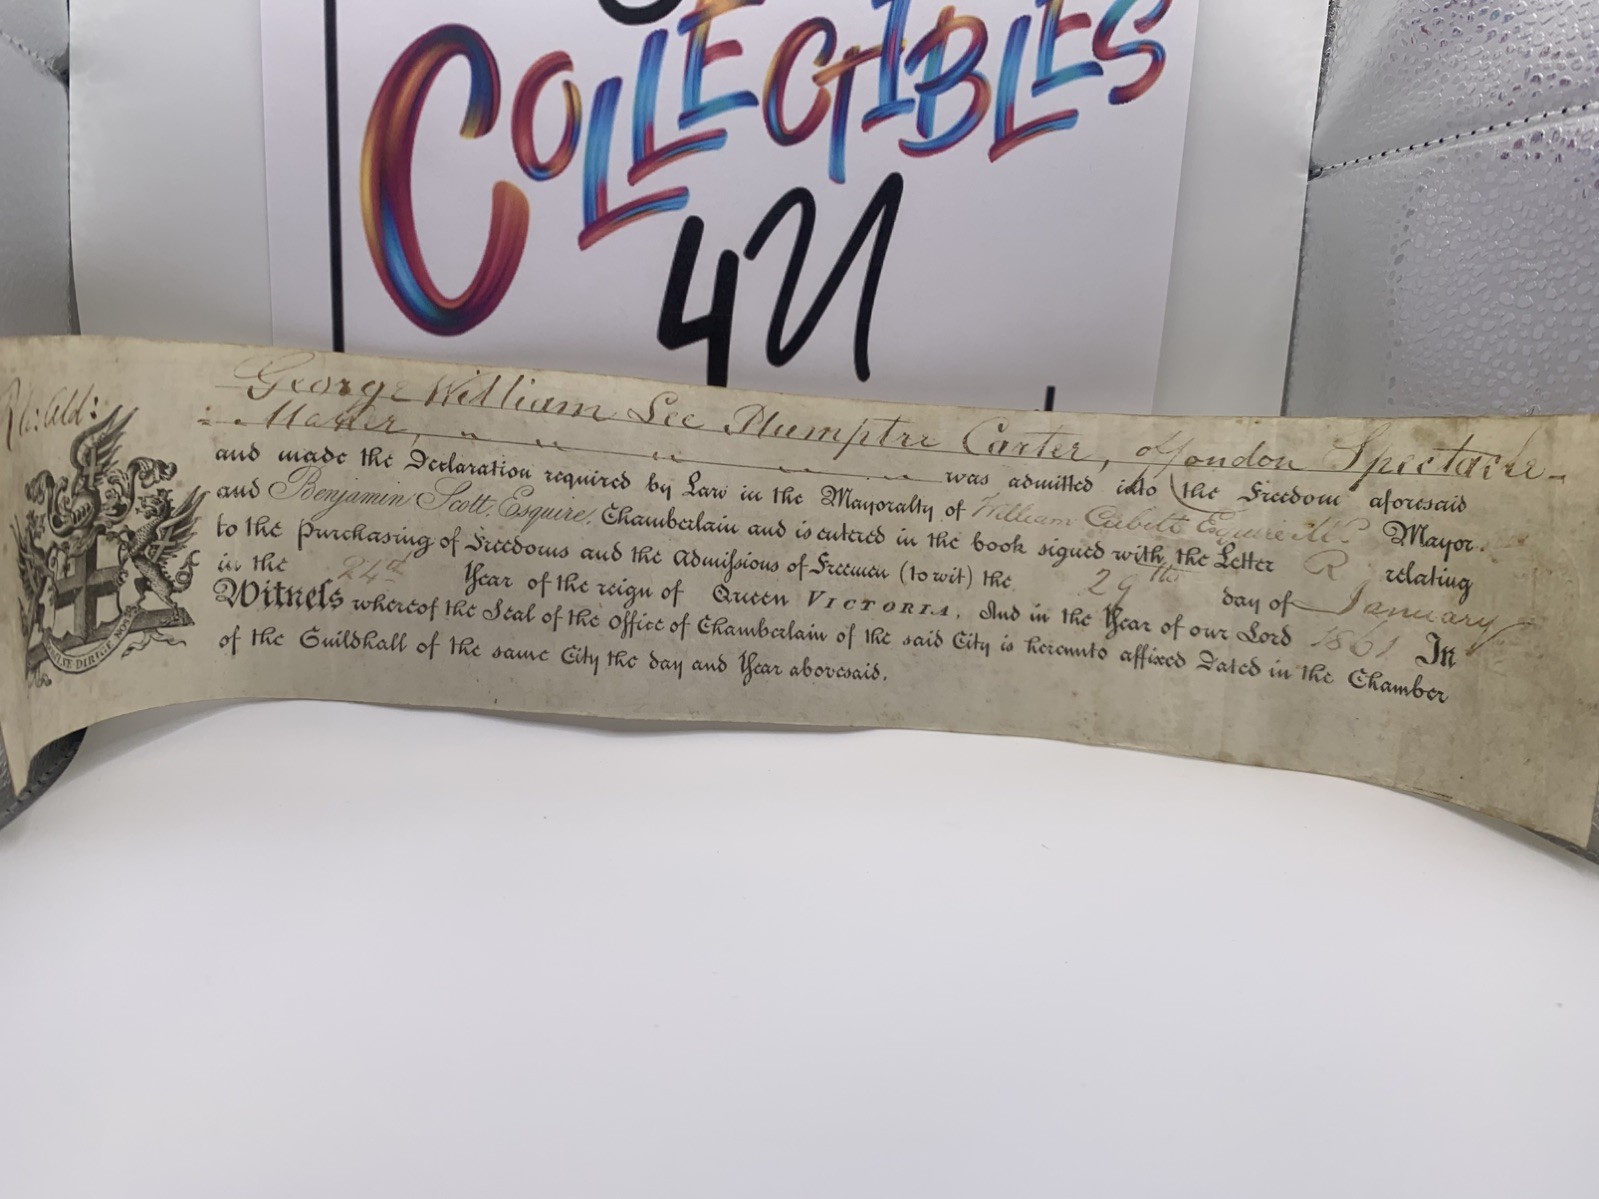 COLLECTIBLES
4U
R. Ald:
George William Lee Plumptre Carter, of London Spectacle-
Maker, was admitted into the Freedom aforesaid
and made the Declaration required by Law in the Mayoralty of William Cubitt Esquire M.P. Mayor.
and Benjamin Scott, Esquire, Chamberlain and is entered in the book signed with the Letter R relating
to the Purchasing of Freedoms and the Admissions of Freemen (to wit) the 29th day of January
in the 24th Year of the reign of Queen VICTORIA, And in the Year of our Lord 1861 In
Witness whereof the Seal of the Office of Chamberlain of the said City is hereunto affixed Dated in the Chamber
of the Guildhall of the same City the day and Year abovesaid.
DIRIGE NOS